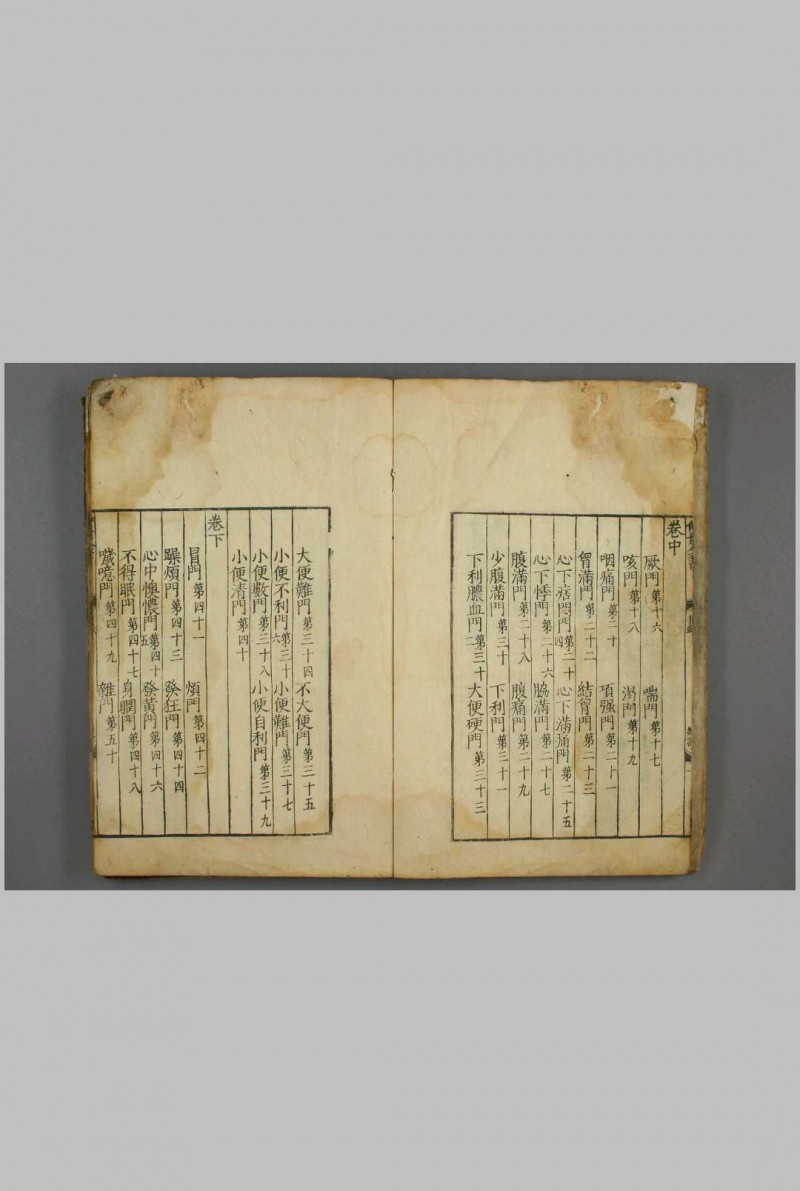 卷中
厥門第十六 喘門第十七
咳門第十八 渴門第十九
咽痛門第二十 項强門第二十一
胷滿門第二十二 結胷門第二十三
心下痞悶門第二十四 心下滿痛門第二十五
心下悸門第二十六 脇滿門第二十七
腹滿門第二十八 腹痛門第二十九
少腹滿門第三十 下利門第三十一
下利膿血門第三十二 大便硬門第三十三
大便難門第三十四 不大便門第三十五
小便不利門第三十六 小便難門第三十七
小便數門第三十八 小便自利門第三十九
小便清門第四十
卷下
冒門第四十一 煩門第四十二
躁煩門第四十三 發狂門第四十四
心中懊憹門第四十五 發黃門第四十六
不得眠門第四十七 身瞤門第四十八
噦噫門第四十九 雜門第五十